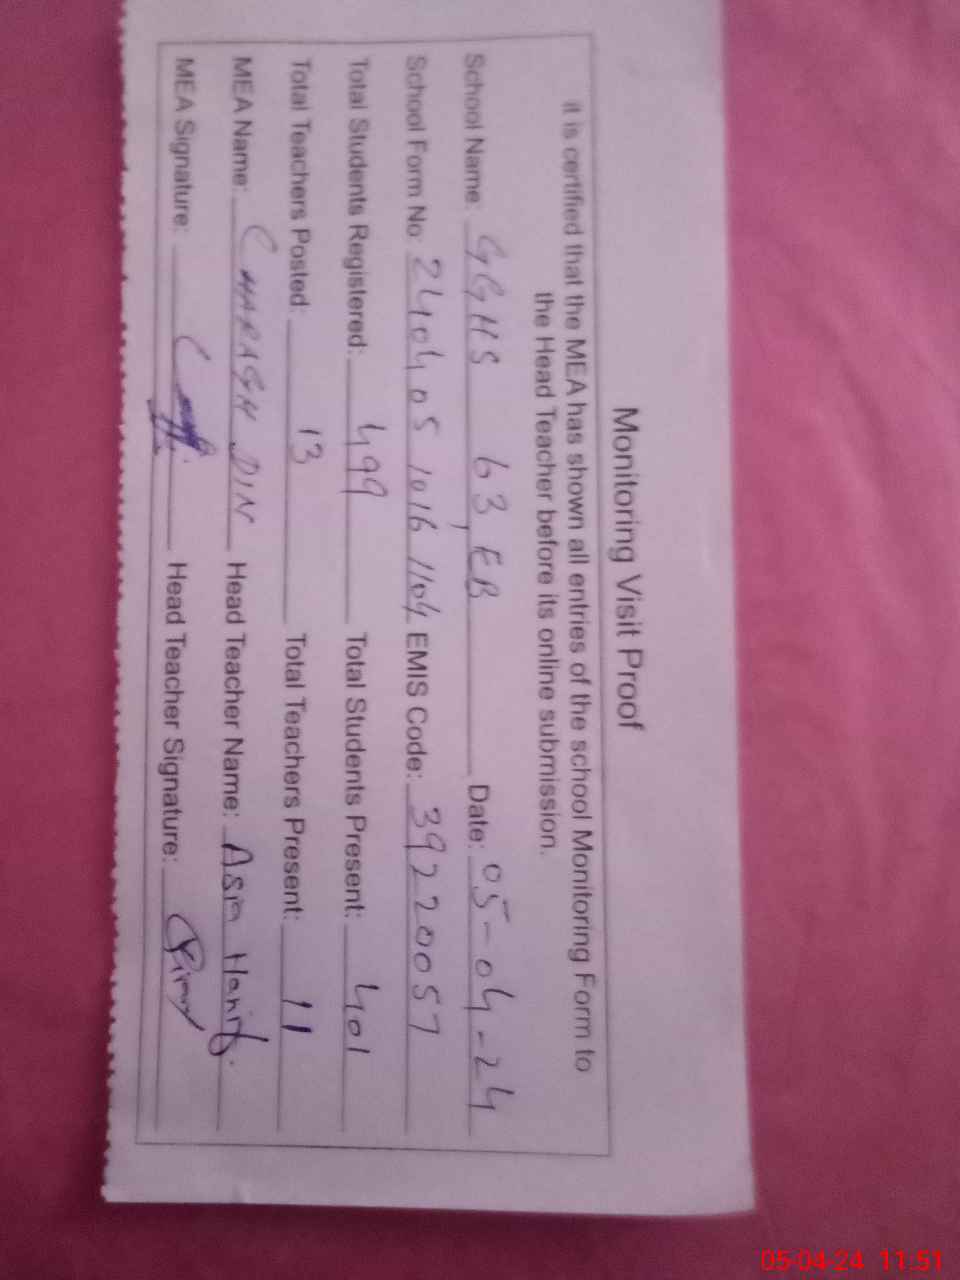 Monitoring Visit Proof
it is certified that the MEA has shown all entries of the school Monitoring Form to
the Head Teacher before its online submission.
School Name: GGHS 63, EB Date: 05-04-24
School Form No: 240405 1016 1104 EMIS Code: 39220057
Total Students Registered: 499 Total Students Present: 401
Total Teachers Posted: 13 Total Teachers Present: 11
MEA Name: CHARAGH DIN Head Teacher Name: Asia Hanif.
MEA Signature: Head Teacher Signature:
05-04-24 11:51